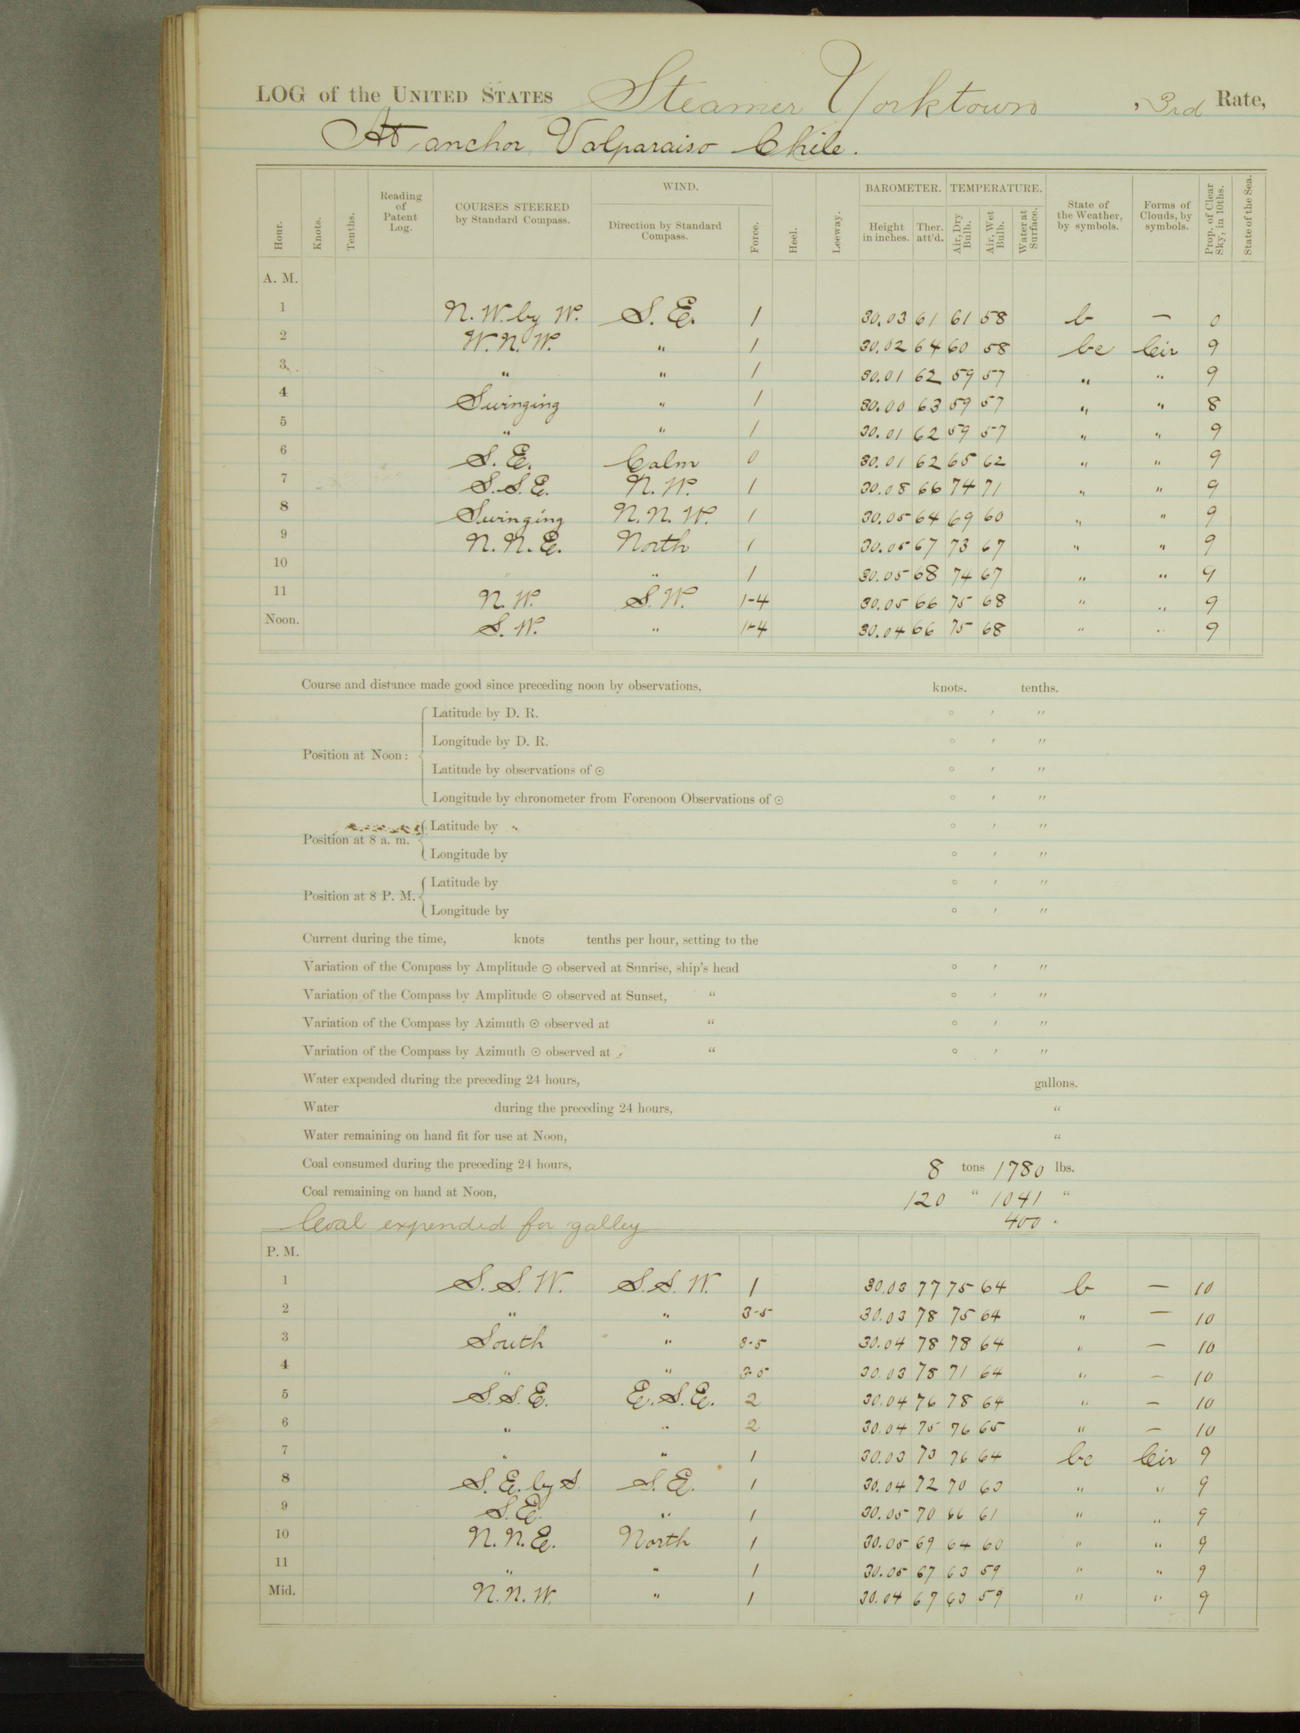 LOG of the UNITED STATES Steamer Yorktown, 3rd Rate,
At anchor, Valparaiso Chile.
Hour. Knots. Tenths. Reading of Patent Log. COURSES STEERED by Standard Compass. WIND. Direction by Standard Compass. Force. Heel. Leeway. BAROMETER. Height in inches. Ther. att'd. TEMPERATURE. Air, Dry Bulb. Air, Wet Bulb. Water at Surface. State of the Weather, by symbols. Forms of Clouds, by symbols. Prop. of Clear Sky, in 10ths. State of the Sea.
A. M.
1 N. W. by W. S. E. 1 30.03 61 61 58 b — 0
2 W. N. W. " 1 30.02 64 60 58 bc Cir 9
3 " " 1 30.01 62 59 57 " " 9
4 Swinging " 1 30.00 63 59 57 " " 8
5 " " 1 30.01 62 59 57 " " 9
6 S. E. Calm 0 30.01 62 65 62 " " 9
7 S. S. E. N. W. 1 30.08 66 74 71 " " 9
8 Swinging N. N. W. 1 30.05 64 69 60 " " 9
9 N. N. E. North 1 30.05 67 73 67 " " 9
10 " 1 30.05 68 74 67 " " 9
11 N. W. S. W. 1-4 30.05 66 75 68 " " 9
Noon. S. W. " 1-4 30.04 66 75 68 " " 9
Course and distance made good since preceding noon by observations, knots. tenths.
Position at Noon: Latitude by D. R. ° ′ ″
Longitude by D. R. ° ′ ″
Latitude by observations of ☉ ° ′ ″
Longitude by chronometer from Forenoon Observations of ☉ ° ′ ″
Position at 8 a. m. Latitude by ° ′ ″
Longitude by ° ′ ″
Position at 8 P. M. Latitude by ° ′ ″
Longitude by ° ′ ″
Current during the time, knots tenths per hour, setting to the
Variation of the Compass by Amplitude ☉ observed at Sunrise, ship's head ° ′ ″
Variation of the Compass by Amplitude ☉ observed at Sunset, " ° ′ ″
Variation of the Compass by Azimuth ☉ observed at " ° ′ ″
Variation of the Compass by Azimuth ☉ observed at " ° ′ ″
Water expended during the preceding 24 hours, gallons.
Water during the preceding 24 hours, "
Water remaining on hand fit for use at Noon, "
Coal consumed during the preceding 24 hours, 8 tons 1780 lbs.
Coal remaining on hand at Noon, 120 " 1041 "
Coal expended for galley 400 "
P. M.
1 S. S. W. S. S. W. 1 30.03 77 75 64 b — 10
2 " " 3-5 30.03 78 75 64 " — 10
3 South " 3-5 30.04 78 78 64 " — 10
4 " " 3-5 30.03 78 71 64 " — 10
5 S. S. E. E. S. E. 2 30.04 76 78 64 " — 10
6 " " 2 30.04 75 76 65 " — 10
7 " " 1 30.03 73 76 64 bc Cir 9
8 S. E. by S. S. E. 1 30.04 72 70 63 " " 9
9 S. E. " 1 30.05 70 66 61 " " 9
10 N. N. E. North 1 30.05 69 64 60 " " 9
11 " " 1 30.05 67 63 59 " " 9
Mid. N. N. W. " 1 30.04 67 63 59 " " 9